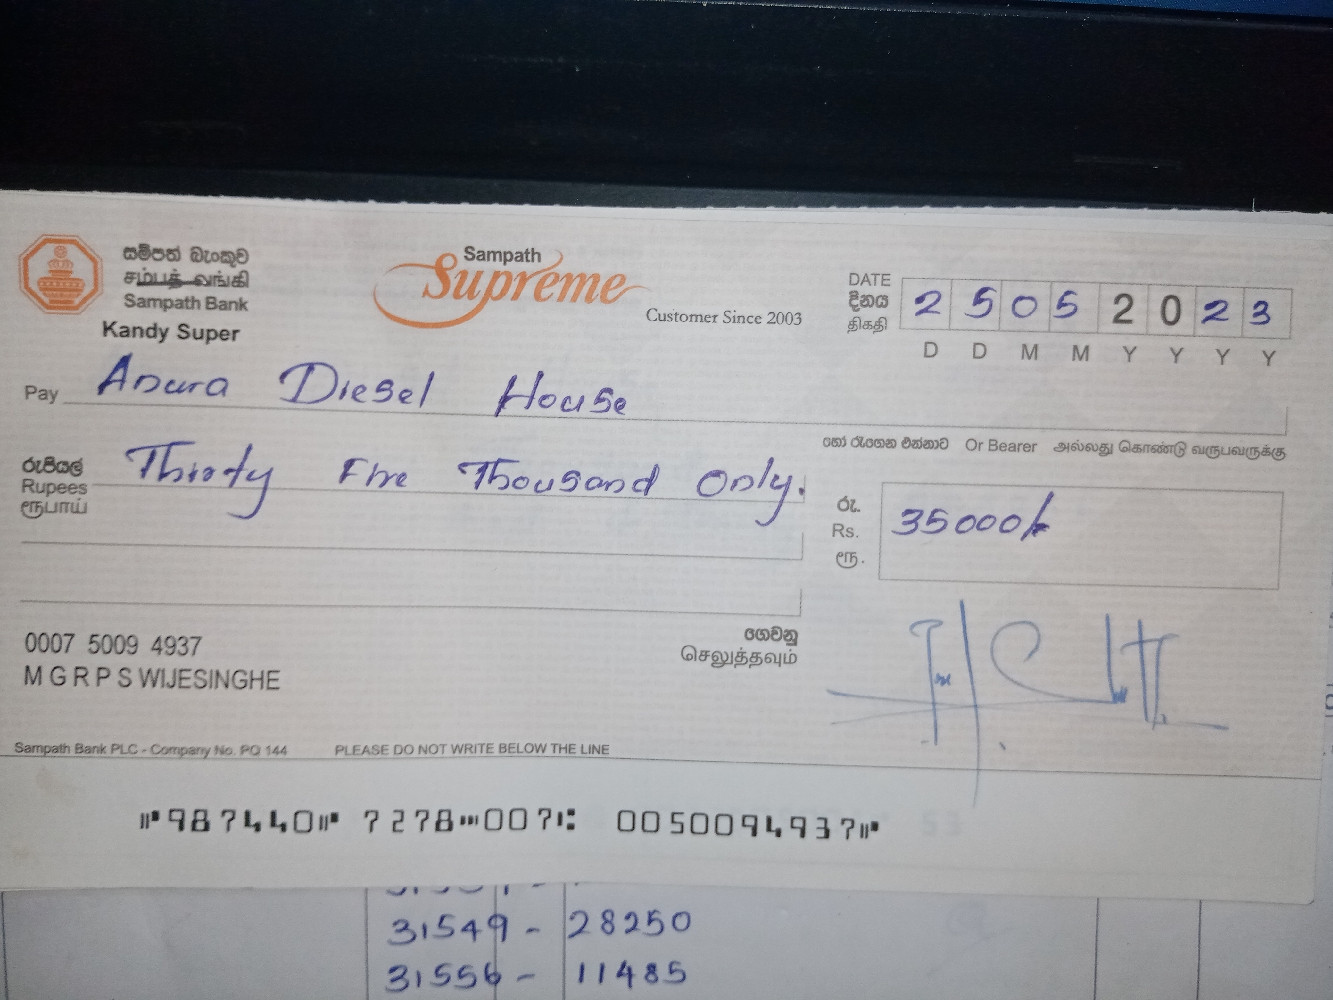 සම්පත් බැංකුව
சம்பத் வங்கி
Sampath Bank
Kandy Super
Sampath
Supreme
Customer Since 2003
DATE
දිනය
திகதி
2 5 0 5 2 0 2 3
D D M M Y Y Y Y
Pay Anura Diesel House
හෝ රැගෙන එන්නාට Or Bearer அல்லது கொண்டு வருபவருக்கு
රුපියල්
Rupees
ரூபாய்
Thirty Five Thousand Only.
රු.
Rs.
ரூ.
35000/-
0007 5009 4937
M G R P S WIJESINGHE
ගෙවනු
செலுத்தவும்
Sampath Bank PLC - Company No. PQ 144 PLEASE DO NOT WRITE BELOW THE LINE
⑈987440⑈ 7278⑉007⑆ 0050094937⑈
31549 - 28250
31556 - 11485